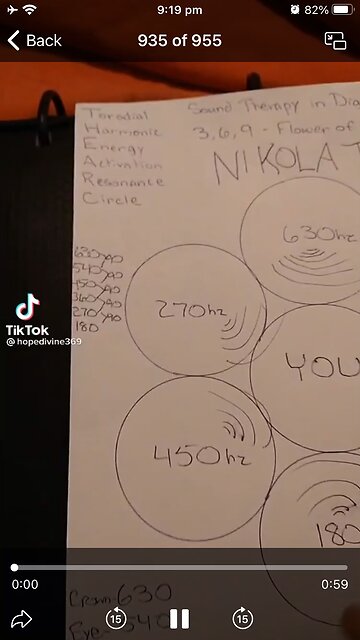 9:19 pm
82%
Back
935 of 955
Toroidial
Harmonic
Energy
Activation
Resonance
Circle
Sound Therapy in
3, 6, 9 - Flower of
NIKOLA
630hz
270hz
YOU
450hz
180
630
540
450
360
270
180
TikTok
@hopedivine369
Crown-630
540
0:00
0:59
15
15